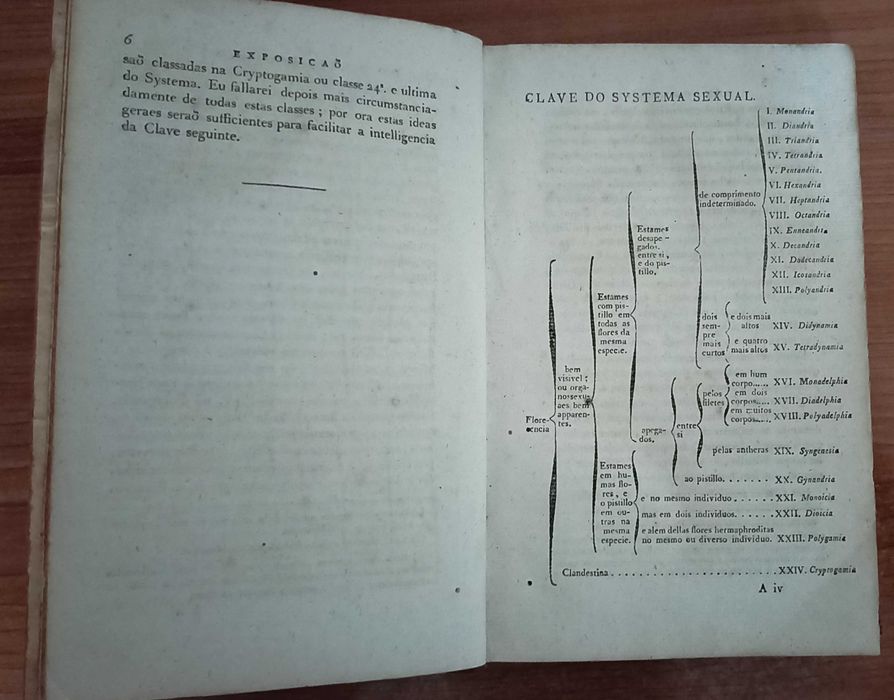 6
EXPOSICAÕ
saõ classadas na Cryptogamia ou classe 24ª. e ultima
do Systema. Eu fallarei depois mais circumstancia-
damente de todas estas classes ; por ora estas ideas
geraes seraõ sufficientes para facilitar a intelligencia
da Clave seguinte.
CLAVE DO SYSTEMA SEXUAL.
Flore-
cencia
bem
visivel ;
ou orga-
nos sexu-
aes bem
apparen-
tes.
Estames
com pis-
tillo em
todas as
flores da
mesma
especie.
Estames
desape-
gados.
entre si,
e do pis-
tillo.
de comprimento
indeterminado.
I. Monandria
II. Diandria
III. Triandria
IV. Tetrandria
V. Pentandria.
VI. Hexandria
VII. Heptandria
VIII. Octandria
IX. Enneandria
X. Decandria
XI. Dodecandria
XII. Icosandria
XIII. Polyandria
dois
sem-
pre
mais
curtos
e dois mais
altos XIV. Didynamia
e quatro
mais altos XV. Tetradynamia
apega-
dos.
entre
si
pelos
filetes
em hum
corpo...... XVI. Monadelphia
em dois
corpos..... XVII. Diadelphia
em muitos
corpos..... XVIII. Polyadelphia
pelas antheras XIX. Syngenesia
ao pistillo. . . . . . . . XX. Gynandria
Estames
em hu-
mas flo-
res, e
o pistillo
em ou-
tras na
mesma
especie.
e no mesmo individuo . . . . . . XXI. Monoicia
mas em dois individuos. . . . . . XXII. Dioicia
e além dellas flores hermaphroditas
no mesmo ou diverso individuo. XXIII. Polygamia
Clandestina . . . . . . . . . . . . . . . . . . . . . . . . XXIV. Cryptogamia
A iv